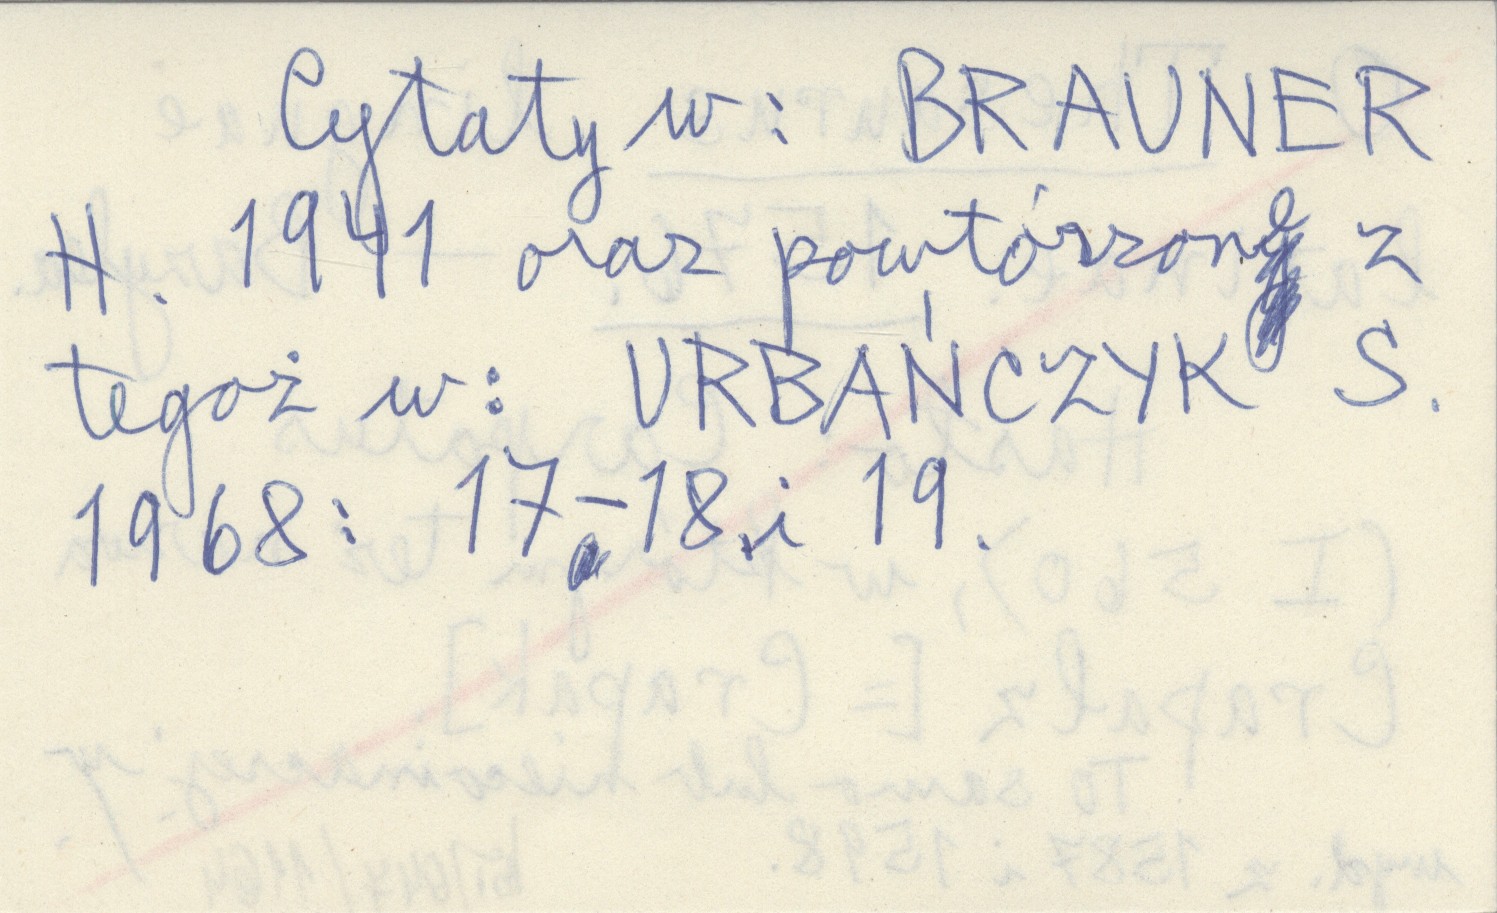 Cytaty w: BRAUNER
H. 1941 oraz powtórzone z
tegoż w: URBAŃCZYK S.
1968: 17-18 i 19.